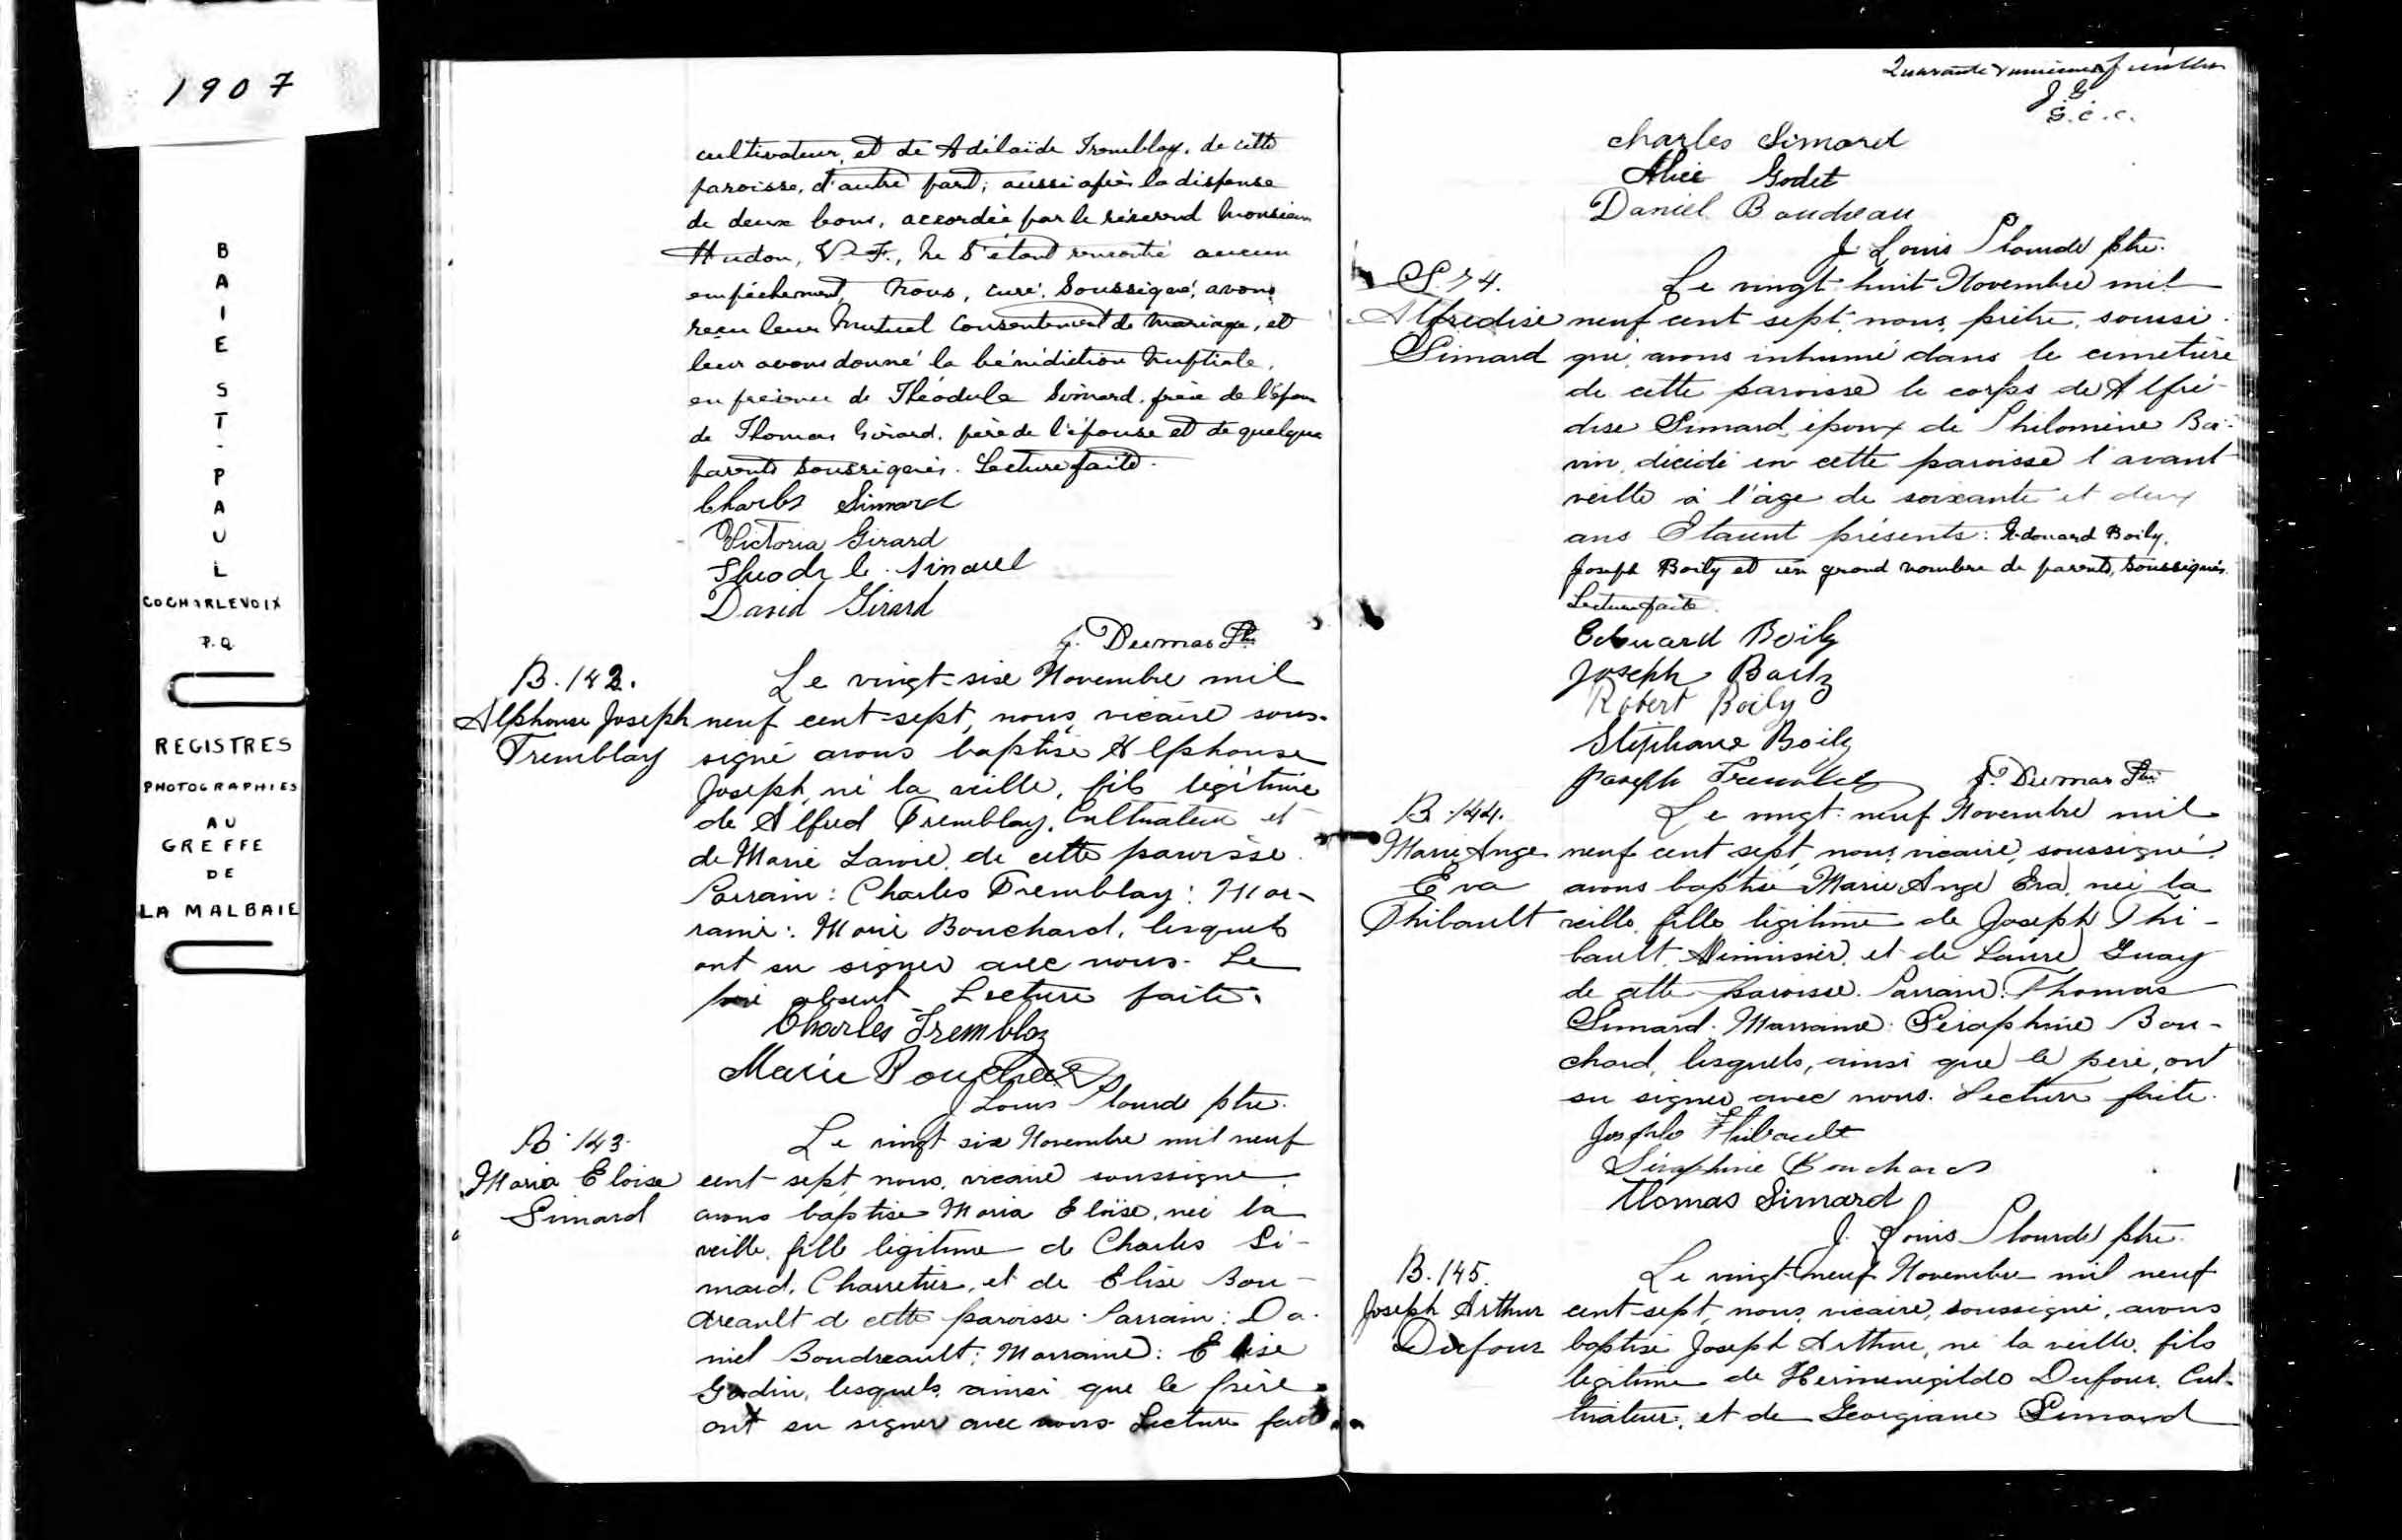 1907
BAIE ST-PAUL
CO CHARLEVOIX
P.Q.
REGISTRES
PHOTOGRAPHIES
AU
GREFFE
DE
LA MALBAIE
cultivateur, et de Adélaïde Tremblay, de cette
paroisse, d'autre part; aussi après la dispense
de deux bans, accordée par le révérend Monsieur
Hudon, V.F., ne s'étant rencontré aucun
empêchement, Nous, curé, soussigné, avons
reçu leur mutuel consentement de mariage, et
leur avons donné la bénédiction nuptiale,
en présence de Théodule Simard, frère de l'époux
de Thomas Girard, père de l'épouse et de quelques
parents soussignés. Lecture faite.
Charles Simard
Victoria Girard
David Girard
J. Dumas Ptre
B. 142.
Alphonse Joseph
Tremblay
Le vingt-six Novembre mil
neuf cent-sept, nous, vicaire sous-
signé avons baptisé Alphonse
Joseph, né la veille, fils légitime
de Alfred Tremblay, Cultivateur et
de Marie Lavoie, de cette paroisse.
Parrain: Charles Tremblay: Mar-
raine: Marie Bouchard, lesquels
ont su signer avec nous. Le
père absent. Lecture faite.
Charles Tremblay
Marie Bouchard
J Louis Plourde ptre.
B. 143.
Maria Eloise
Simard
Le vingt six Novembre mil neuf
cent-sept, nous, vicaire soussigné,
avons baptisé Maria Eloïse, née la
veille, fille légitime de Charles Si-
mard, Charretier, et de Elise Bou-
dreault de cette paroisse. Parrain: Da-
niel Boudreault; Marraine: Elise
Godin, lesquels, ainsi que le père
ont su signer avec nous. Lecture faite
Quarante & unième feuillet
J G
G. C. C.
Charles Simard
Alice Godet
Daniel Boudreau
J. Louis Plourde ptre.
S. 74.
Alfredise
Simard
Le vingt-huit Novembre mil
neuf cent sept, nous, prêtre, soussi-
gné, avons inhumé dans le cimetière
de cette paroisse le corps de Alfré-
dise Simard, époux de Philomène Boi-
vin, décédé en cette paroisse l'avant
veille à l'âge de soixante et deux
ans Etaient présents: Edouard Boily,
Joseph Boily et un grand nombre de parents, soussignés.
Lecture faite.
Edouard Boily
Joseph Boily
Robert Boily
Stéphane Boily
Joseph Tremblay J. Dumas Ptre
B. 144.
Marie Ange
Eva
Thibault
Le vingt-neuf Novembre mil
neuf cent sept, nous, vicaire, soussigné,
avons baptisé Marie Ange Eva, née la
veille, fille légitime de Joseph Thi-
bault, Menuisier, et de Laure Guay
de cette paroisse. Parrain: Thomas
Simard. Marraine: Séraphine Bou-
chard, lesquels, ainsi que le père, ont
su signer avec nous. Lecture faite.
Joseph Thibault
Séraphine Bouchard
Thomas Simard
J. Louis Plourde ptre.
B. 145.
Joseph Arthur
Dufour
Le vingt-neuf Novembre mil neuf
cent-sept, nous, vicaire, soussigné, avons
baptisé Joseph Arthur, né la veille, fils
légitime de Herménégilde Dufour, Cul-
tivateur, et de Georgiane Simard